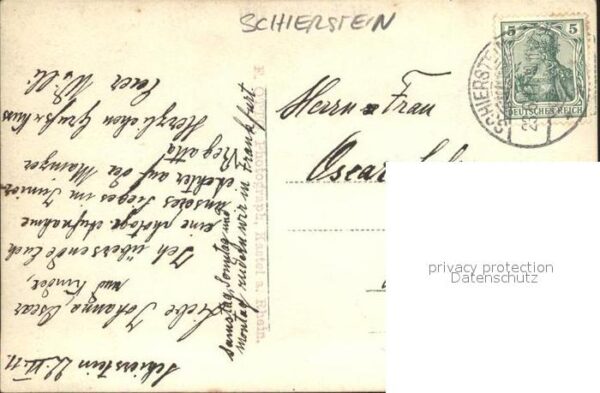 SCHIERSTEIN
5 5
DEUTSCHES REICH
SCHIERSTEIN
Herrn u Frau
Oscar
privacy protection
Datenschutz
Photograph, Kastel a. Rhein.
Schierstein
Liebe Johanna, Oscar
und Kinder,
Ich übersende Euch
eine photogr. Aufnahme
unseres Sieges im Junior
Achter auf der Mainzer
Regatta
Herzlichen Gruß u Kuss
Euer Willi
Samstag, Sonntag und
Montag rudern wir in Frankfurt